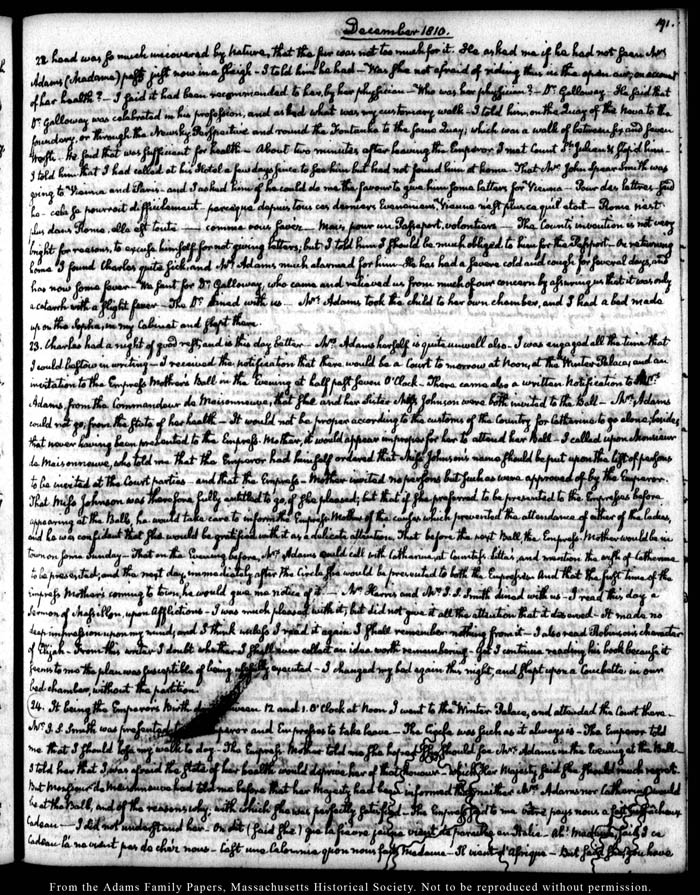 December 1810.
91.
22. head was so much uncovered by Nature, that the fur was not too much for it. He asked me if he had not seen Mrs
Adams (Madame) pass just now in a sleigh – I told him he had – Was she not afraid of riding thus in the open air, on account
of her health? – I said it had been recommended to her, by her physician – Who was her physician? – Dr. Galloway – He said that
Dr. Galloway was celebrated in his profession, and asked what was my customary walk – I told him, on the Quay of the Neva to the
foundery, or through the Newsky Perspective and round the Fontanka to the same Quay; which was a walk of between six and seven
Wersts. He said that was sufficient for health – About two minutes after leaving the Emperor I met Count St. Julien & stop'd him –
I told him that I had called at his Hotel a few days since to see him but had not found him at home – That Mr. John Spear Smith was
going to Vienna and Paris – and I asked him if he could do me the favour to give him some letters for Vienna – Pour des lettres – said
he – cela se pourroit difficilement, parceque depuis tous ces derniers Evenemens, Vienna n'est plus ce qu'il etoit – Rome n'est
plus dans Rome, elle est toute — comme vous savez — Mais, pour un Passeport, volontiers – The Count's invention is not very
bright for reasons, to excuse himself for not giving letters; but I told him I should be much obliged to him for the Passport – On returning
home I found Charles quite sick, and Mrs. Adams much alarmed for him – He has had a severe cold and cough for several days, and
has now some fever – We sent for Dr. Galloway, who came and relieved us from much of our concern by assuring us that it was only
a catarrh with a slight fever – The Dr. dined with us – Mrs. Adams took the child to her own chamber, and I had a bed made
up on the Sopha, in my Cabinet and slept there.
23. Charles had a night of good rest, and is this day better – Mrs. Adams herself is quite unwell also – I was engaged all the time that
I could bestow in writing – I received the notification that there would be a Court to morrow at Noon, at the Winter Palace; and an
invitation to the Empress Mother's Ball in the Evening at half past seven O'Clock – There came also a written Notification to Mrs.
Adams, from the Commandeur de Maisonneuve, that she and her Sister Miss Johnson were both invited to the Ball – Mrs. Adams
could not go, from the State of her health – It would not be proper according to the customs of the Country for Catherine to go alone; besides
that never having been presented to the Empress Mother, it would appear improper for her to attend her Ball – I called upon Monsieur
de Maisonneuve, who told me that the Emperor had himself ordered that Miss Johnson's name should be put upon the list of persons
to be invited at the Court parties – and that the Empress-Mother invited no persons but such as were approved of by the Emperor.
That Miss Johnson was therefore fully entitled to go, if she pleased; but that if she preferred to be presented to the Empresses before
appearing at the Balls, he would take care to inform the Empress Mother of the cause which prevented the attendance of either of the ladies,
and he was confident that she would be gratified with it as a delicate attention. That before the next Ball the Empress Mother would be in
town on some Sunday – That on the Evening before, Mrs. Adams could call with Catherine at Countess Litta's, and mention the wish of Catherine
to be presented; and the next day, immediately after the Circle she would be presented to both the Empresses. And that the first time of the
Empress Mother's coming to town, he would give me notice of it. — Mr. Harris and Mr. J. S. Smith dined with us – I read this day a
Sermon of Massillon, upon Afflictions – I was much pleased with it, but did not give it all the attention that it deserved – It made no
deep impression upon my mind; and I think unless I read it again I shall remember nothing from it – I also read Robinson's character
of Elijah – From this writer I doubt whether I shall ever collect an idea worth remembering – Yet I continue reading his book because it
seems to me the plan was susceptible of being executed – I changed my bed again this night, and slept upon a Couchette in our
bed chamber, without the partition.
24. It being the Emperor's Birth between 12 and 1 O'Clock at Noon I went to the Winter Palace, and attended the Court there –
Mr. J. S. Smith was presented Emperor and Empresses to take leave – The Circle was such as it always is – The Emperor told
me that I should lose my walk to day – The Empress Mother told me she hoped she should see Mrs. Adams in the evening at the Ball –
I told her that I was afraid the State of her health would deprive her of that honour – which Her Majesty said she should much regret.
But Monsieur de Maisonneuve had told me before that her Majesty had been informed that neither Mrs. Adams nor Catherine would
be at the Ball, and of the reasons why, with which she was perfectly satisfied – The Empress said to me votre pays nous a fait
Cadeau – I did not understand her – On dit (said she) que la fievre jaune vient de paroitre en Italie – Ah! Madame, said I ce
Cadeau là ne vient pas de chez nous – C'est une Calomnie qu'on nous fait, Madame – Il vient d'Afrique – But said she, you have
From the Adams Family Papers, Massachusetts Historical Society. Not to be reproduced without permission.